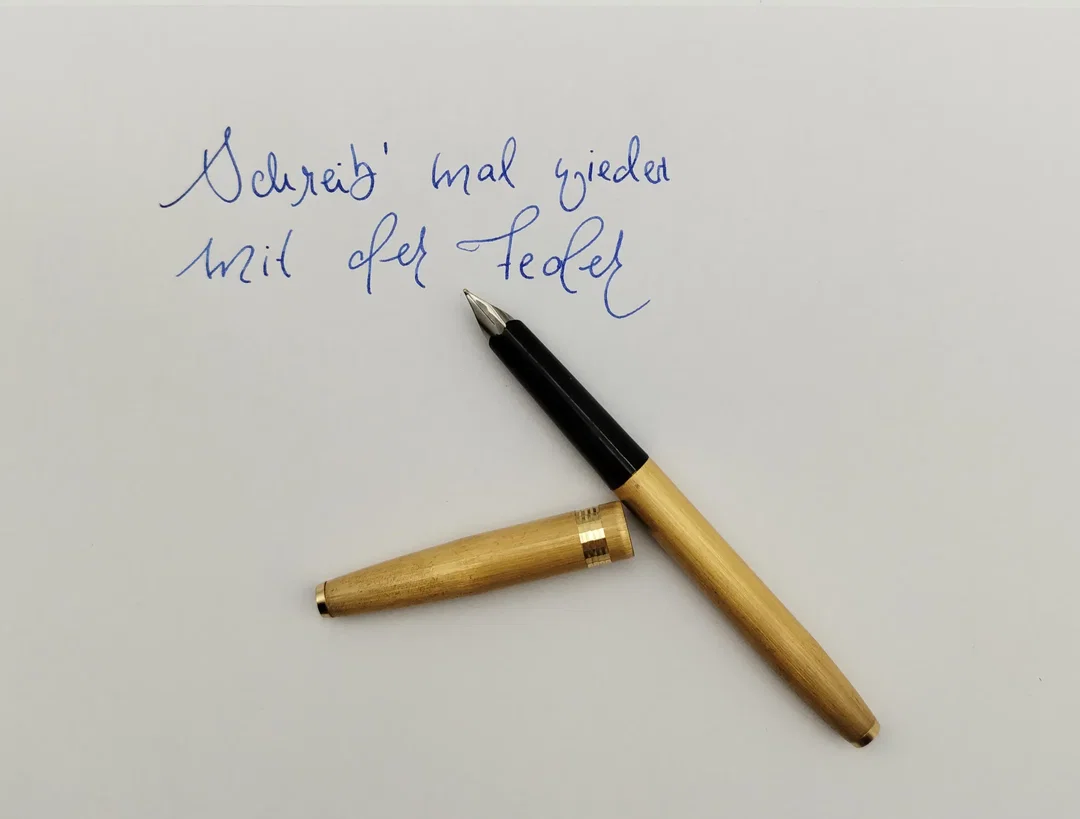 Schreib' mal wieder
mit der Feder